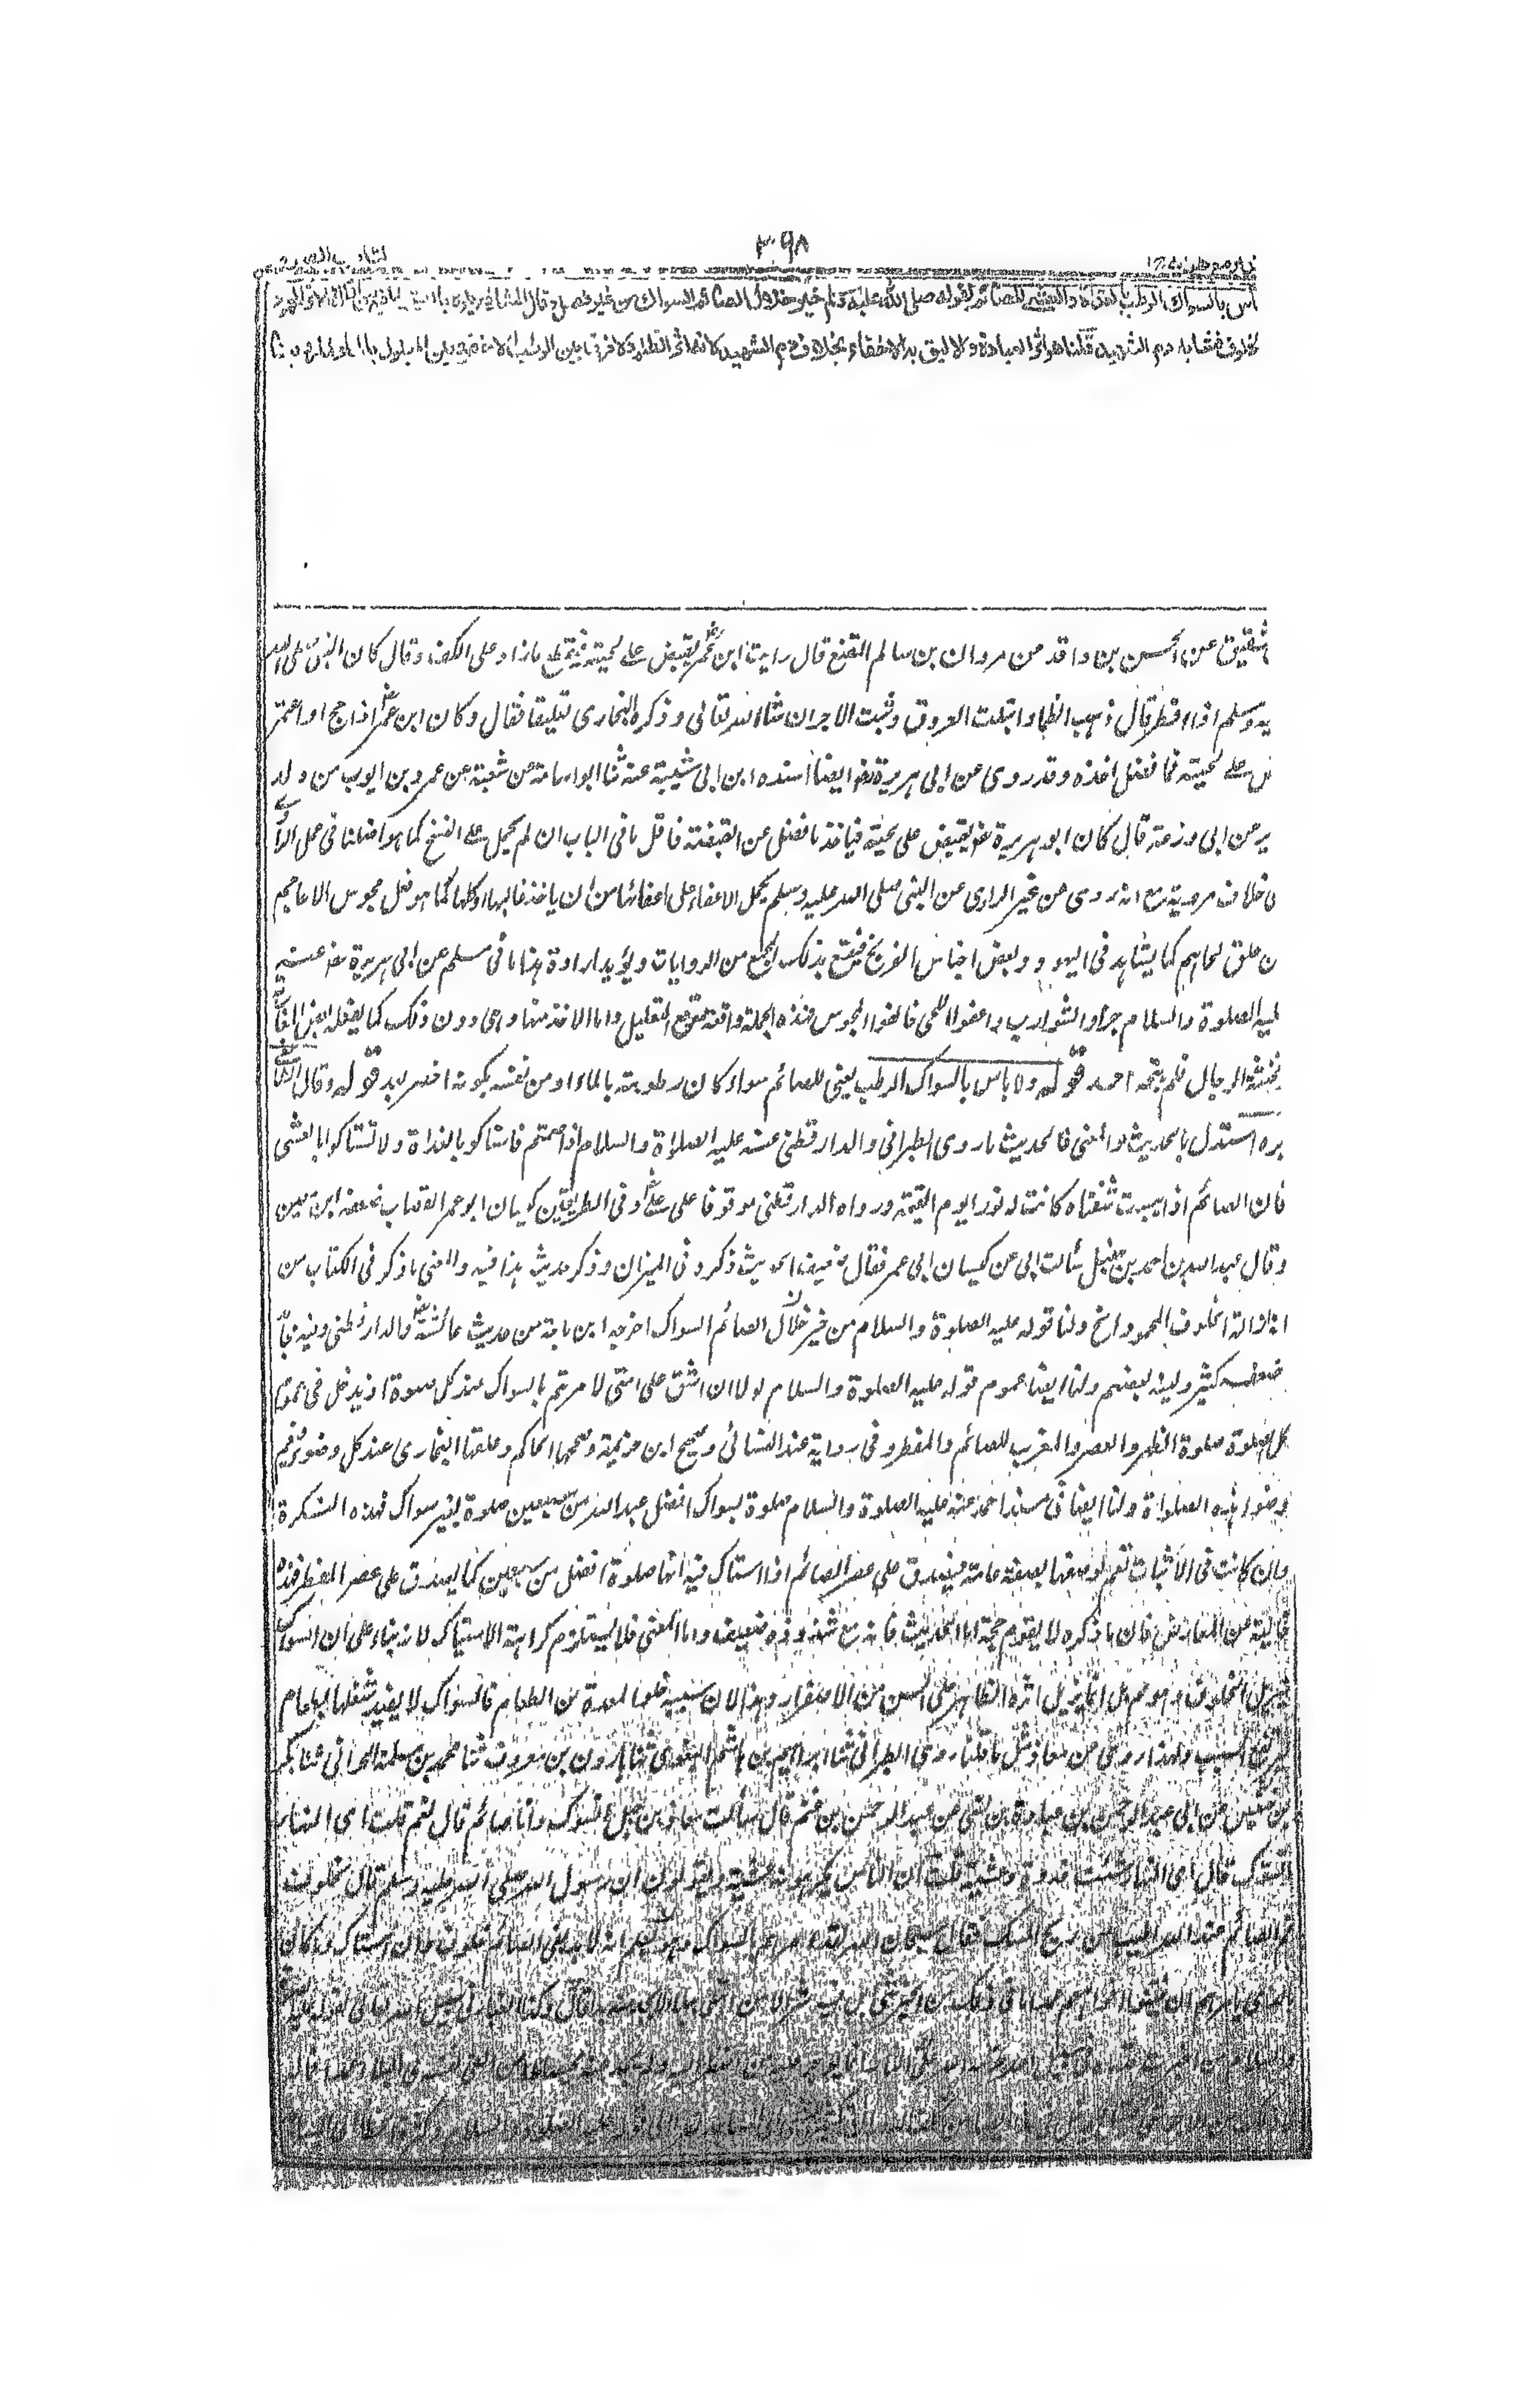 ٣٩٨
باس بالسواك الرطب بالغداة والعشي للصائم لقوله صلى الله عليه وسلم خير خلال الصائم السواك من غير فصل وقال الشافعي يكره بالعشي لما فيه من ازالة الاثر المحمود
الخلوف فشابه دم الشهيد قلنا هو اثر العبادة والاليق به الاخفاء بخلاف دم الشهيد لانه اثر الظلم ولا فرق بين الرطب الاخضر وبين المبلول بالماء لما روينا
شقيق عن الحسين بن واقد من مروان بن سالم المقنع قال رايت ابن عمر يقبض على لحيته فيقطع ما زاد على الكف وقال كان النبى صلى الله
يه وسلم اذا افطر قال ذهب الظما وابتلت العروق وثبت الاجر ان شاء الله تعالى وذكره البخارى تعليقا فقال وكان ابن عمر اذا حج او اعتمر
ض على لحيته فما فضل اخذه وقد روى عن ابى هريرة ايضا اسنده ابن ابى شيبة عنه ثنا ابو اسامة عن شعبة عن عمرو بن ايوب من ولد
ير عن ابى زرعة قال كان ابو هريرة يقبض على لحيته فياخذ ما فضل عن القبضة فاقل ما فى الباب ان لم يحمل على النسخ كما هو اصلنا فى عمل الراوى
ى خلاف مرويه مع انه روى عن غير الراوى عن النبى صلى الله عليه وسلم يحمل الاعفاء على اعفائها من ان ياخذ غالبها او كلها كما هو فعل مجوس الاعاجم
ن حلق لحاهم كما يشاهد فى اليهود وبعض اجناس الفرنج فيقع بذلك الجمع من الروايات ويؤيد ارادة هذا ما فى مسلم عن ابى هريرة عنه
ليه الصلوة والسلام جزوا الشوارب واعفوا اللحى خالفوا المجوس فهذه الجملة واقعة موقع التعليل واما الاخذ منها وهى دون ذلك كما يفعله بعض المغاربة
مخنثة الرجال فلم يبحه احد قوله ولا باس بالسواك الرطب يعنى للصائم سواء كان رطوبته بالماء او من نفسه بكونه اخضر بعد قوله وقال الشافعى
يكره استدل بالحديث والمعنى فالحديث ما روى الطبرانى والدارقطنى عنه عليه الصلاة والسلام اذا صمتم فاستاكوا بالغداة ولا تستاكوا بالعشى
فان الصائم اذا يبست شفتاه كانت له نورا يوم القيمة ورواه الدارقطنى موقوفا على على وفى الطريقين كيسان ابو عمر القصاب ضعفه ابن معين
وقال عبد الله بن احمد بن حنبل سألت ابى عن كيسان ابى عمر فقال ضعيف الحديث ذكره فى الميزان وذكر حديثه هذا فيه والمعنى ما ذكر فى الكتاب من
انه ازالة الخلوف المحمود الخ ولنا قوله عليه الصلوة والسلام من خير خلال الصائم السواك اخرجه ابن ماجة من حديث عائشة والدارقطنى وفيه مجالد
ضعفه كثير ولينه بعضهم ولنا ايضا عموم قوله عليه الصلوة والسلام لولا ان اشق على امتى لامرتهم بالسواك عند كل صلوة اذ يدخل فى عموم
كل صلوة صلوة الظهر والعصر والمغرب للصائم والمفطر وفى رواية عند النسائى وصحيح ابن خزيمة وصححها الحاكم وعلقها البخارى عند كل وضوء فيعم
وضوء هذه الصلوات ولنا ايضا فى مسند احمد عنه عليه الصلوة والسلام صلوة بسواك افضل عند الله من سبعين صلوة بغير سواك فهذه النكرة
وان كانت فى الاثبات تعم لوصفها بصفة عامة فيصدق على عصر الصائم اذا استاك فيه انها صلوة افضل من سبعين كما يصدق على عصر المفطر فهذه
خالية عن المعارض فان ما ذكره لا يقوم حجة اما الحديث فانه مع شذوذه ضعيف واما المعنى فلا يستلزم كراهة الاستياك لانه بناء على ان السواك
يزيل الخلوف وهو غير مسلم بل انما يزيل اثره الظاهر على السن من الاصفرار وهذا لان سببه خلو المعدة من الطعام فالسواك لا يفيد شغلها بطعام
ليرتفع السبب ولهذا روى عن معاذ مثل ما قلنا روى الطبرانى ثنا ابراهيم بن هاشم البغوى ثنا هارون بن معروف ثنا محمد بن سلمة الحرانى ثنا بكر
بن خنيس عن ابى عبد الرحمن بن عبادة بن نسى عن عبد الرحمن بن غنم قال سألت معاذ بن جبل اتسوك وانا صائم قال نعم قلت اى النهار
اتسوك قال اى النهار شئت غدوة وعشية قلت ان الناس يكرهونه عشية ويقولون ان رسول الله صلى الله عليه وسلم قال لخلوف
فم الصائم عند الله اطيب من ريح المسك فقال سبحان الله لقد امرهم بالسواك وهو يعلم انه لا بد بفى الصائم خلوف وان استاك وما كان